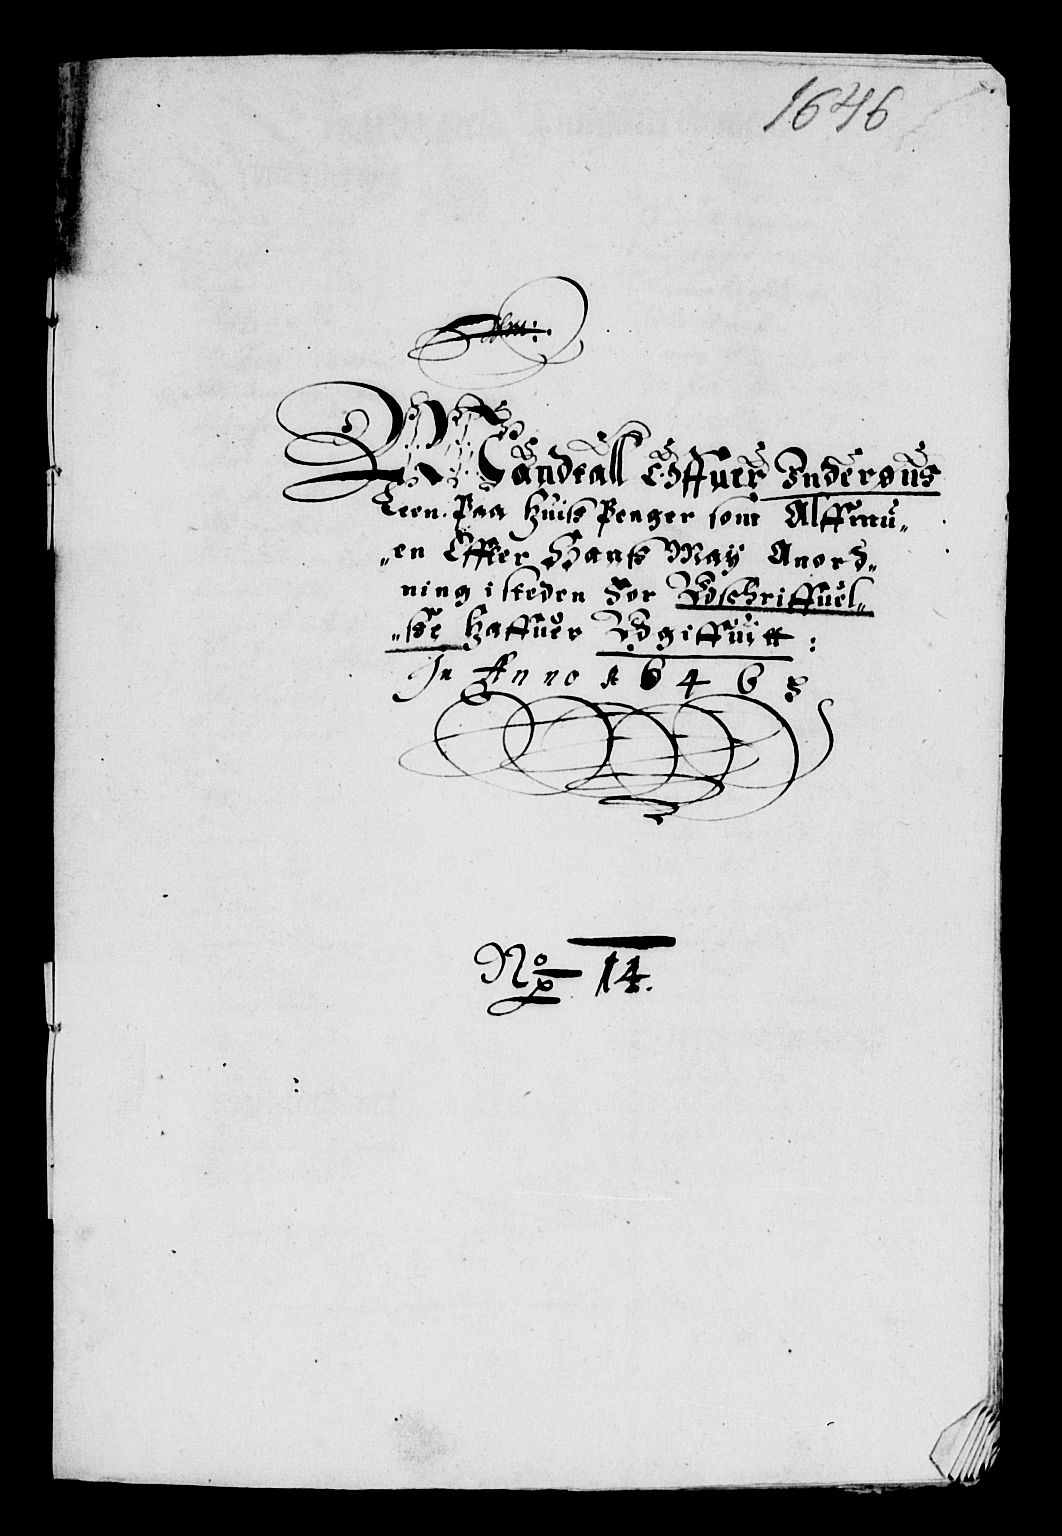 1646
Mandtall Offuer Indersøus
Leen. Paa Huisk Penger som Alffmu„
„en Effter Hansk May Anord„
ning i steden for Udschriffuel„
„ße Haffuer Udgiffuitt :
In Anno 1646
No 14.